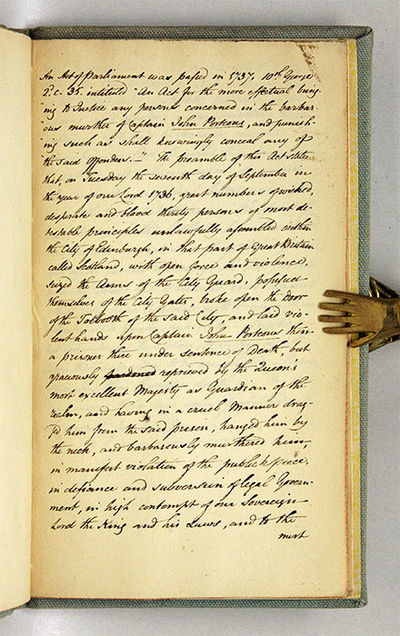 An Act of Parliament was passed in 1737, 10th George
2. c. 35. intituled "An Act for the more effectual bring
ing to Justice any persons concerned in the barbar-
ous murther of Captain John Porteous, and punish-
ing such as shall knowingly conceal any of
the said offenders.-" The preamble of this Act states
that, on Tuesday the seventh day of September in
the year of our Lord 1736, great numbers of wicked,
desperate and blood thirsty persons of most de-
testable principles unlawfully assembled within
the City of Edinburgh, in that part of Great Britain
called Scotland, with open force and violence,
seized the Arms of the City Guard, possessed
themselves of the City Gates, broke open the Door
of the Tolbooth of the said City, and laid vio-
lent hands upon Captain John Porteous then
a prisoner there under sentence of Death, but
graciously pardoned reprieved by the Queen's
most excellent Majesty as Guardian of the
realm, and having in a cruel Manner drag-
g'd him from the said prison, hanged him by
the neck, and barbarously murthered him,
in manifest violation of the publick peace,
in defiance and subversion of legal Govern-
ment, in high contempt of our Sovereign
Lord the King and his Laws, and to the
most